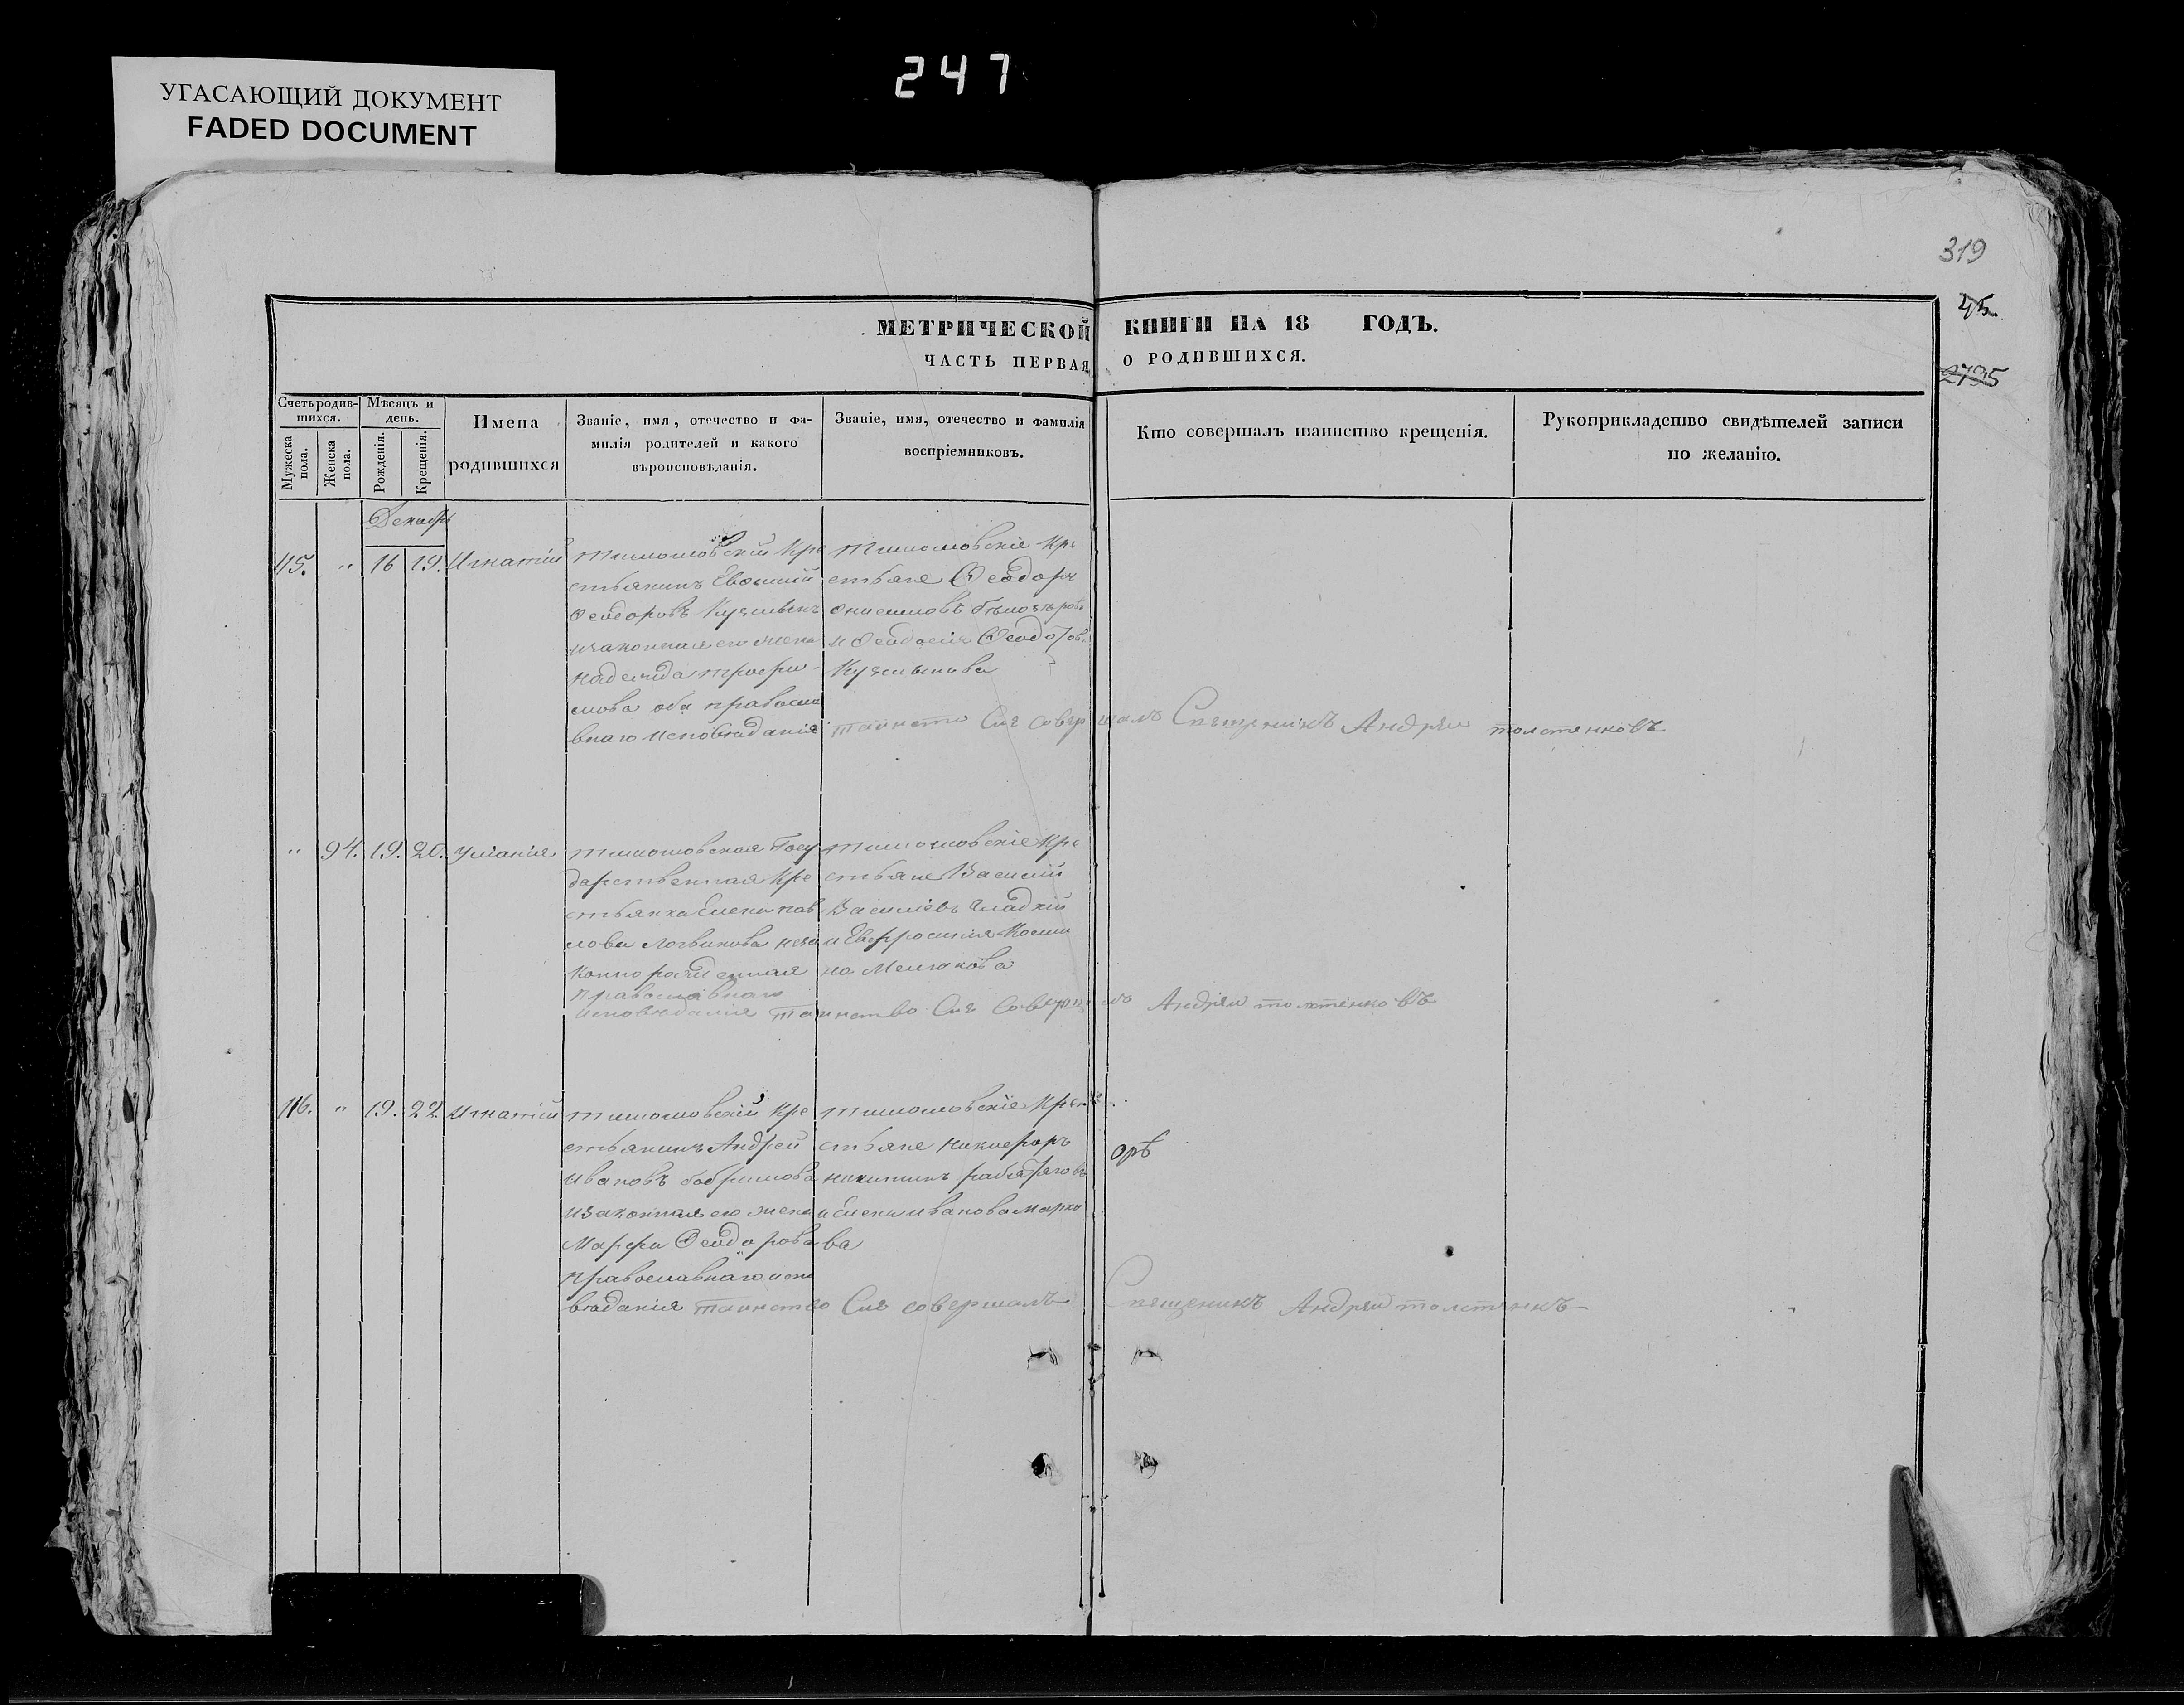 УГАСАЮЩИЙ ДОКУМЕНТ
FADED DOCUMENT
247
319
45.
2795
МЕТРИЧЕСКОЙ КНИГИ НА 18 ГОДЪ.
ЧАСТЬ ПЕРВАЯ О РОДИВШИХСЯ.
Счетъ родив-
шихся.
Мужеска
пола.
Женска
пола.
Мѣсяцъ и
день.
Рожденія.
Крещенія.
Имена
родившихся
Званіе, имя, отечество и фа-
милія родителей и какого
вѣроисповѣданія.
Званіе, имя, отечество и фамилія
воспріемниковъ.
Кто совершалъ таинство крещенія.
Рукоприкладство свидѣтелей записи
по желанію.
Декабрь
115. " 16 19. Игнатій
Тимошовскій Кре
стьянинъ Евфимій
Ѳеодоровъ Кузмынъ
изаконная его жена
надежда Трофи-
мова оба правосла
внаго исповѣданія
Тимошовскіе Кре
стьяне Ѳеодоръ
Онисимовъ
и Ѳеодосія Ѳеодотова
Кузмынова
таинство Сие совершалъ Священникъ Андрей толстенковъ
" 94. 19. 20. Уліанія
Тимошовская Госу
дарственная Кре
стьянка Елена пав
лова Логвинова неза
конно рожденная
православнаго
исповѣданія
Тимошовскіе Кре
стьяне Василій
Василіевъ Гладкій
и Евфросинія Косми
на
таинство Сие Совершалъ Андрей толстенковъ
116. " 19. 22. Игнатій
Тимошовскій Кре
стьянинъ Андрей
Ивановъ
изаконная его жена
Марфа Ѳеодорова
православнаго испо
вѣданія
Тимошовскіе Кре
стьяне Никифоръ
никитинъ
и Елена иванова Марко
ва
таинство Сие совершалъ Священикъ Андрей толстенкъ
орѣ